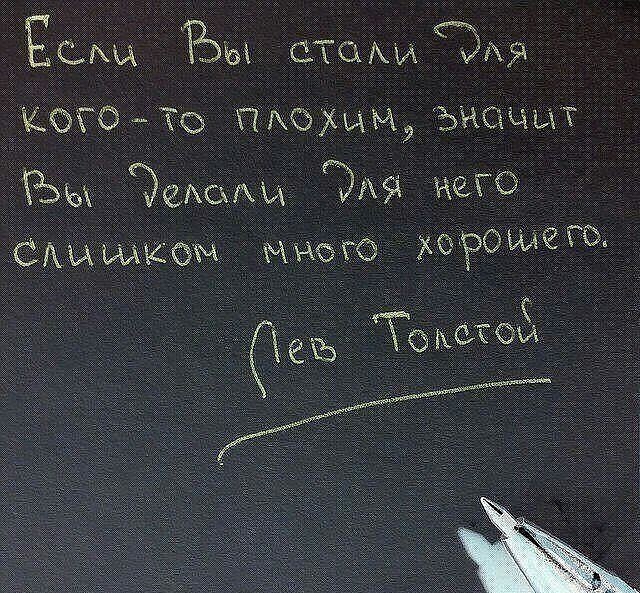 Если Вы стали для
кого-то плохим, значит
Вы делали для него
слишком много хорошего.
Лев Толстой